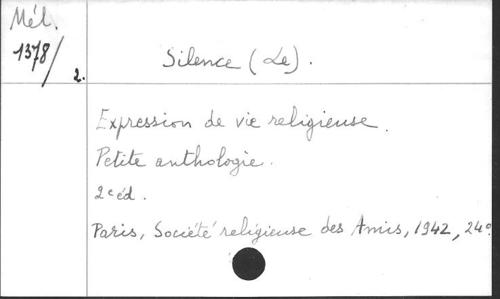 Mél.
1378/2.
Silence (Le).
Expression de vie religieuse.
Petite anthologie.
2e éd.
Paris, Société religieuse des Amis, 1942, 24º.